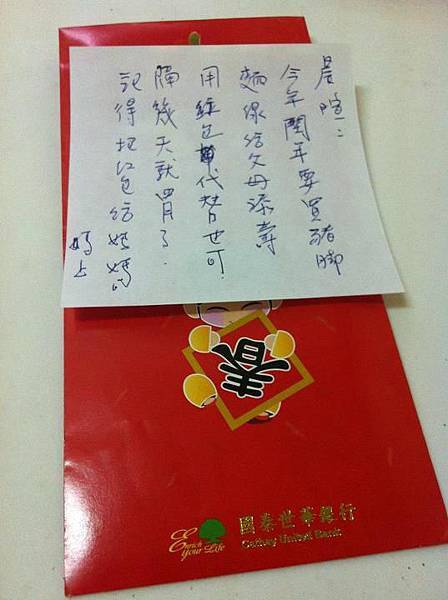 晨暄：
今年閏年要買豬腳
麵線給父母添壽
用紅包代替也可.
賸幾天就四月了.
記得把紅包給媽媽
媽上
春
Enrich Your Life
國泰世華銀行
Cathay United Bank